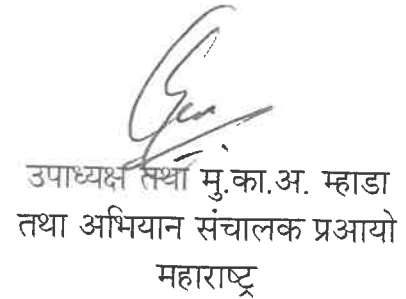 उपाध्यक्ष तथा मुं.का.अ. म्हाडा
तथा अभियान संचालक प्रआयो
महाराष्ट्र